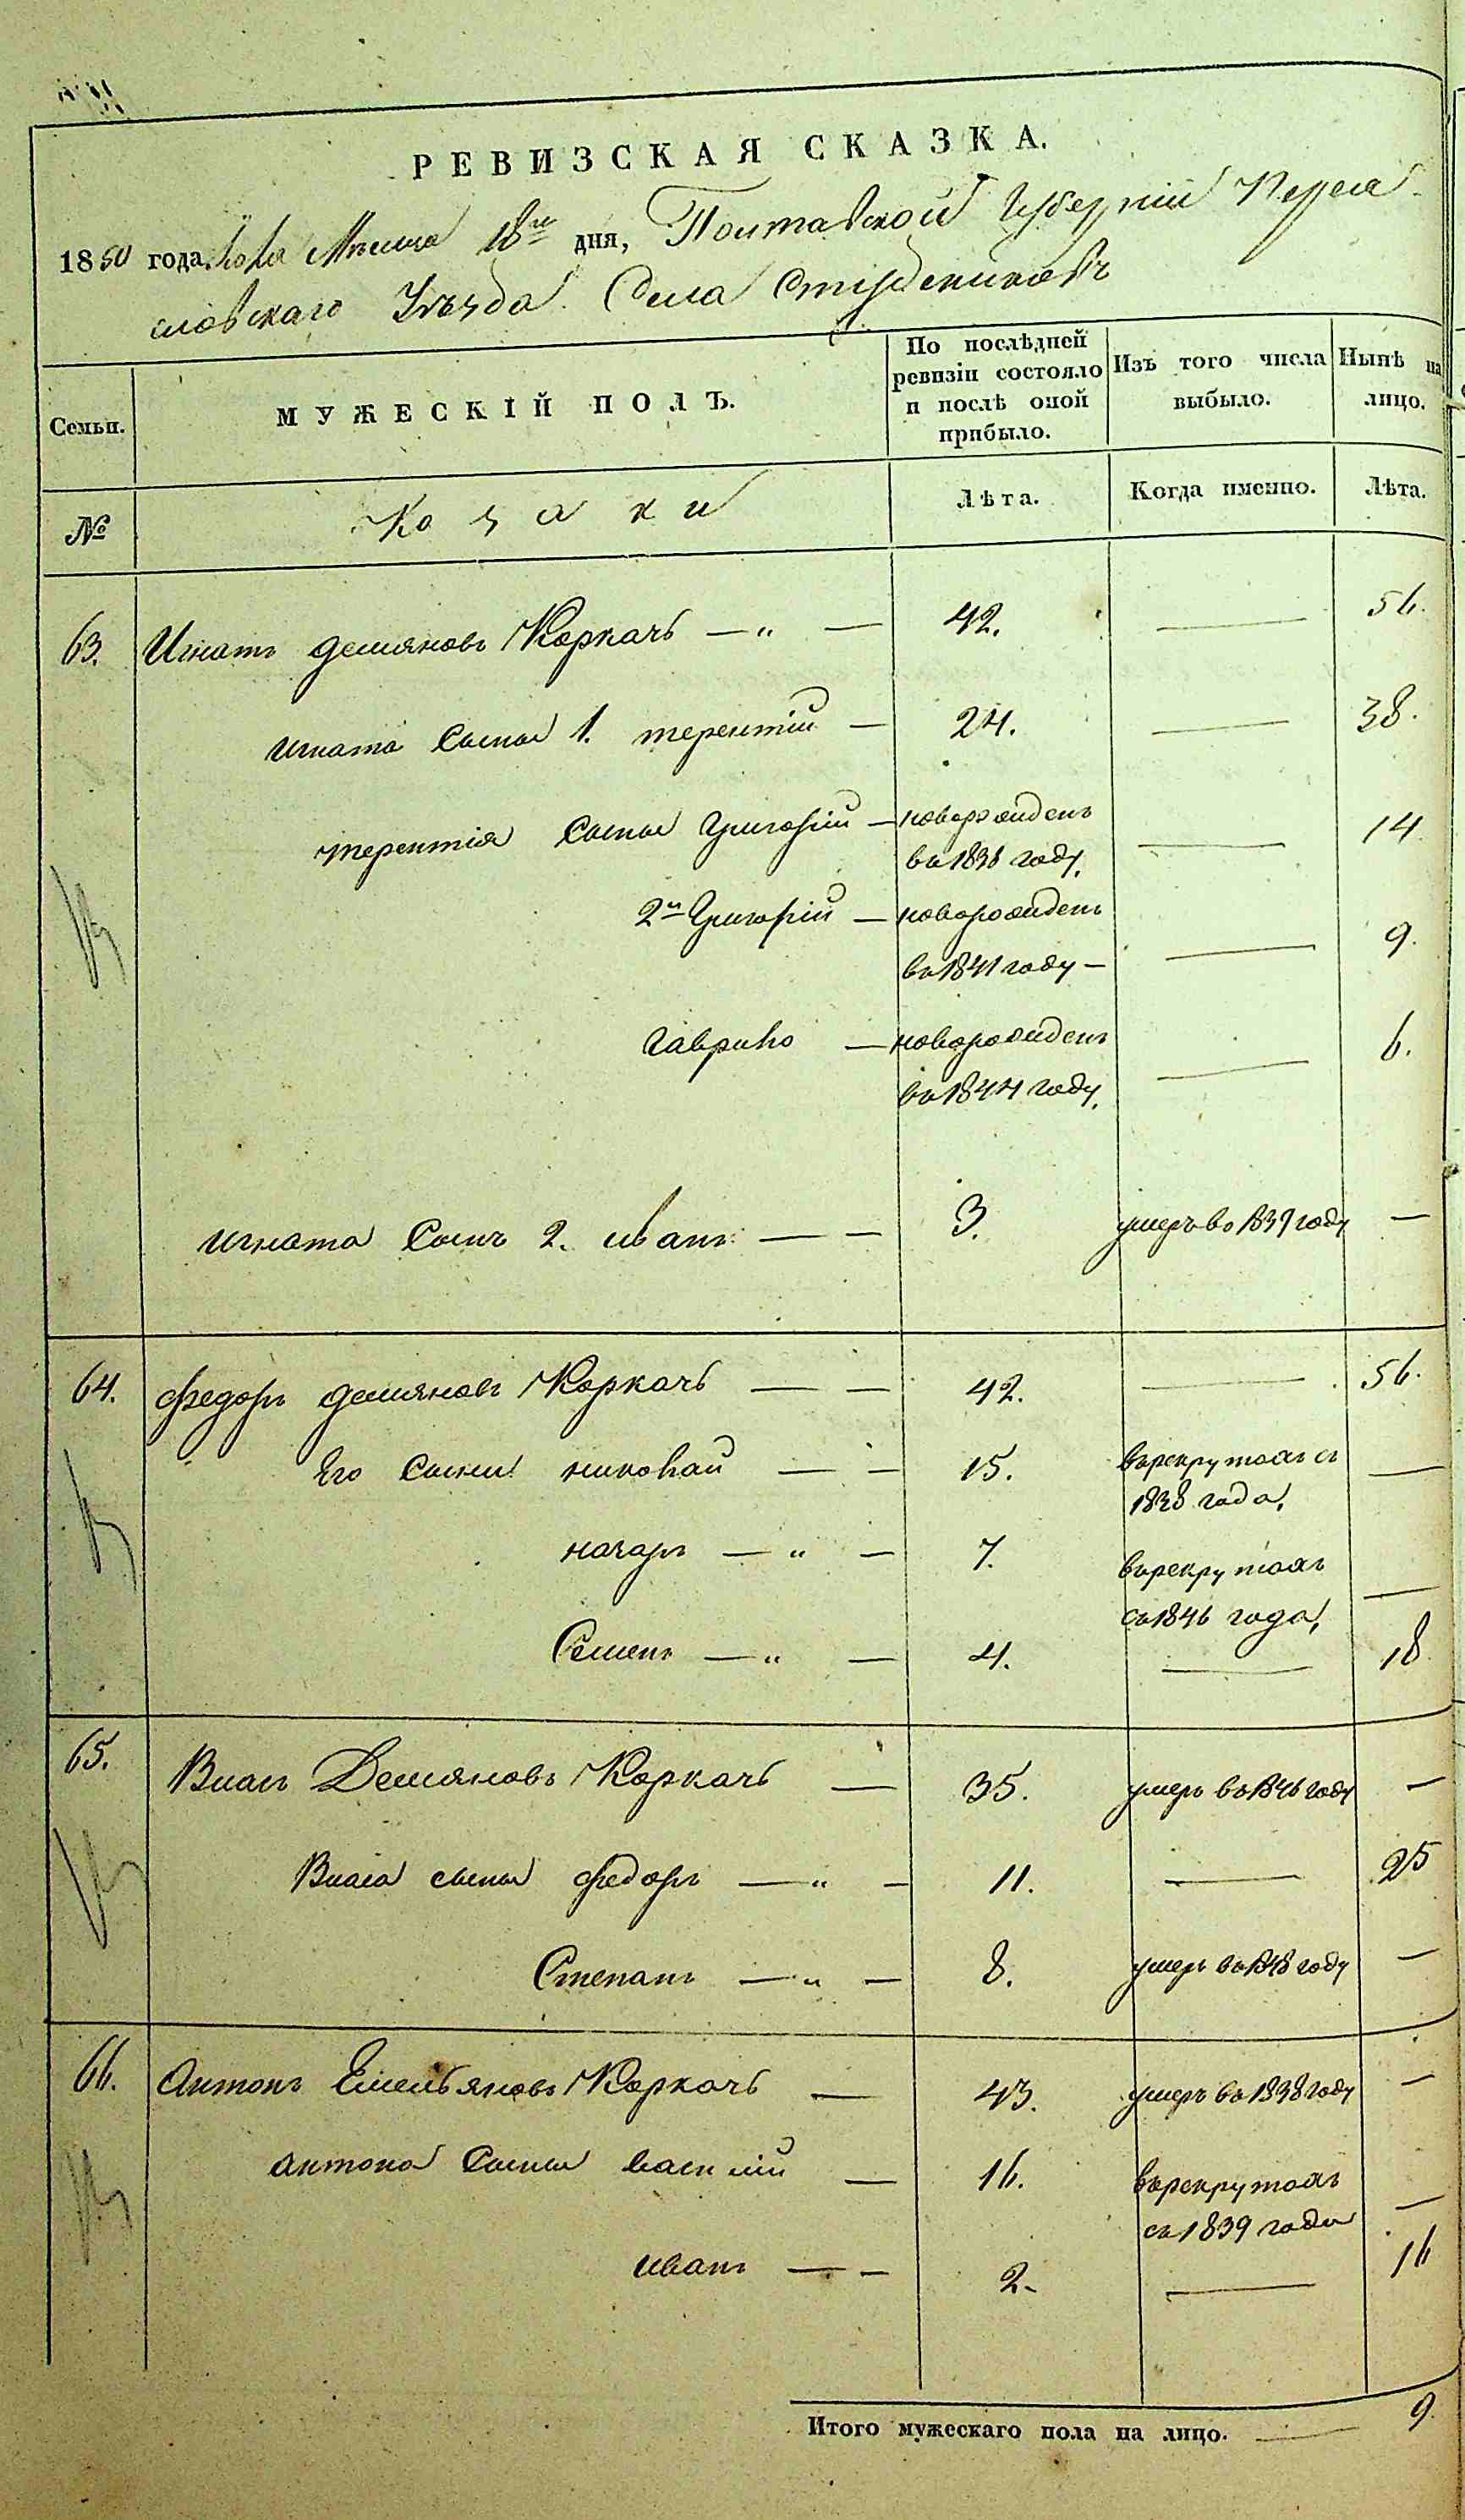 РЕВИЗСКАЯ СКАЗКА.
1850 года Мѣсяца 18го дня, Полтавской Губерніи Перея-
словскаго Уѣзда Села Студениковъ
Семьи.
МУЖЕСКІЙ ПОЛЪ.
По послѣдней ревизіи состояло и послѣ оной прибыло.
Изъ того числа выбыло.
Нынѣ на лицо.
№
Козаки
Лѣта.
Когда именно.
Лѣта.
63. Игнатъ демяновъ Коркачь — „ — 42. — 56.
игната сыны 1. терентій — 24. — 38.
терентія сыны Григорій — новорожденъ — 14
въ 1836 году.
2й Григорій — новорожденъ — 9.
въ 1841 году —
Гаврило — новорожденъ — 6.
въ 1844 году.
игната сынъ 2. иванъ — — 3. умеръ во 1839 году —
64. федоръ демяновъ Коркачь — — 42. — 56.
Его сыны николай — — 15. въ рекрутахъ съ —
1838 года,
назаръ — „ — 7. въ рекрутахъ —
съ 1846 года,
Семенъ — „ — 4. — 18
65. Власъ Демяновъ Коркачь — 35. умеръ въ 1846 году —
Власа сыны федоръ — „ — 11. — 25
Степанъ — „ — 8. умеръ въ 1848 году —
66. Антонъ Емельяновъ Коркачь — 43. умеръ въ 1838 году —
антона сыны василій — 16. въ рекрутахъ —
съ 1839 года
иванъ — — 2. — 16
Итого мужескаго пола на лицо. — 9.